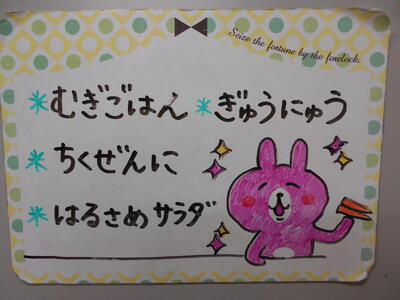 Seize the fortune by the forelock.
*むぎごはん *ぎゅうにゅう
*ちくぜんに
*はるさめサラダ